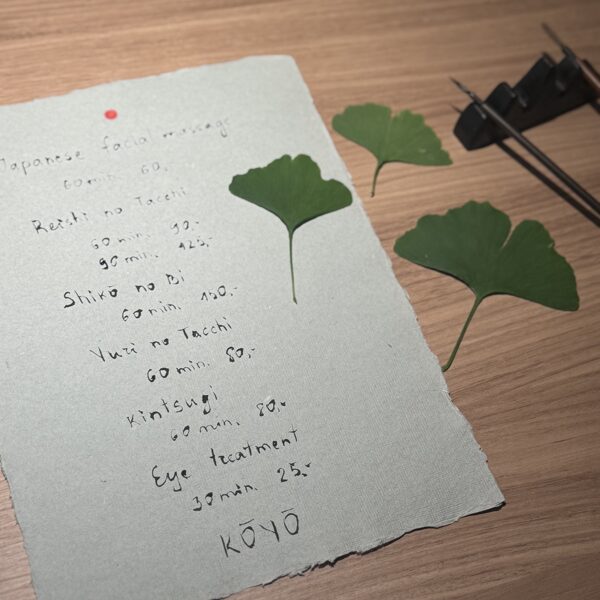 Japanese facial massage
60 min. 60,-
Reishi no Tacchi
60 min. 90,-
90 min. 125,-
Shikō no Bi
60 min. 150,-
Yuri no Tacchi
60 min. 80,-
Kintsugi
60 min. 80,-
Eye treatment
30 min. 25,-
KŌYŌ